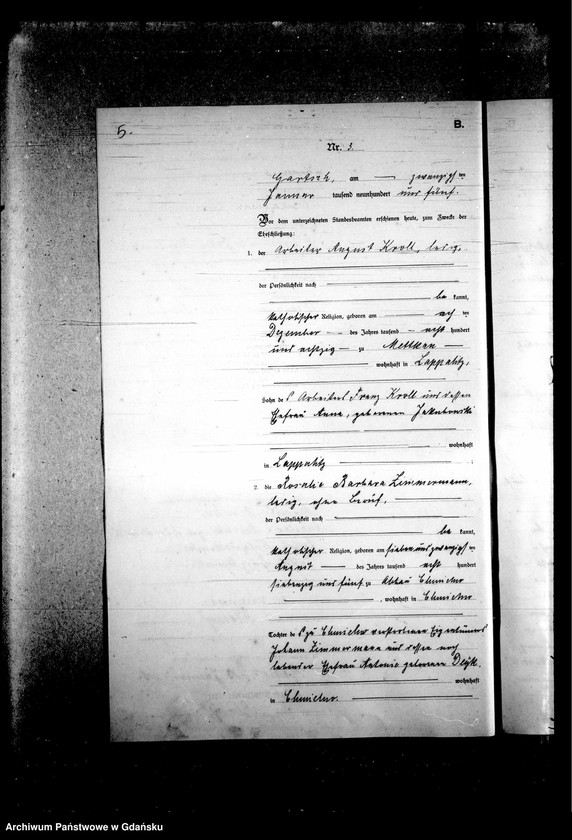 5.
B.
Nr. 3.
Gartsch, am — zwanzigsten
Januar tausend neunhundert und fünf.
Vor dem unterzeichneten Standesbeamten erschienen heute, zum Zwecke der
Eheschließung:
1. der Arbeiter August Kroll, ledig,
der Persönlichkeit nach
be kannt,
katholischer Religion, geboren am — ten
Dezember — des Jahres tausend — acht hundert
und achtzig — zu Mettkau —
wohnhaft in Lappalitz,
Sohn des Arbeiters Franz Kroll und dessen
Ehefrau Anna, geborenen Jakubowski
wohnhaft
in Lappalitz
2. die Rosalie Barbara Zimmermann,
ledig, ohne Beruf,
der Persönlichkeit nach
be kannt,
katholischer Religion, geboren am sieben und zwanzigsten
August — des Jahres tausend acht hundert
siebenzig und fünf zu Abbau Chmielno
, wohnhaft in Chmielno
Tochter des zu Chmielno verstorbenen Eigentümers
Johann Zimmermann und dessen noch
lebender Ehefrau Antonie geborenen
wohnhaft
in Chmielno.
Archiwum Państwowe w Gdańsku